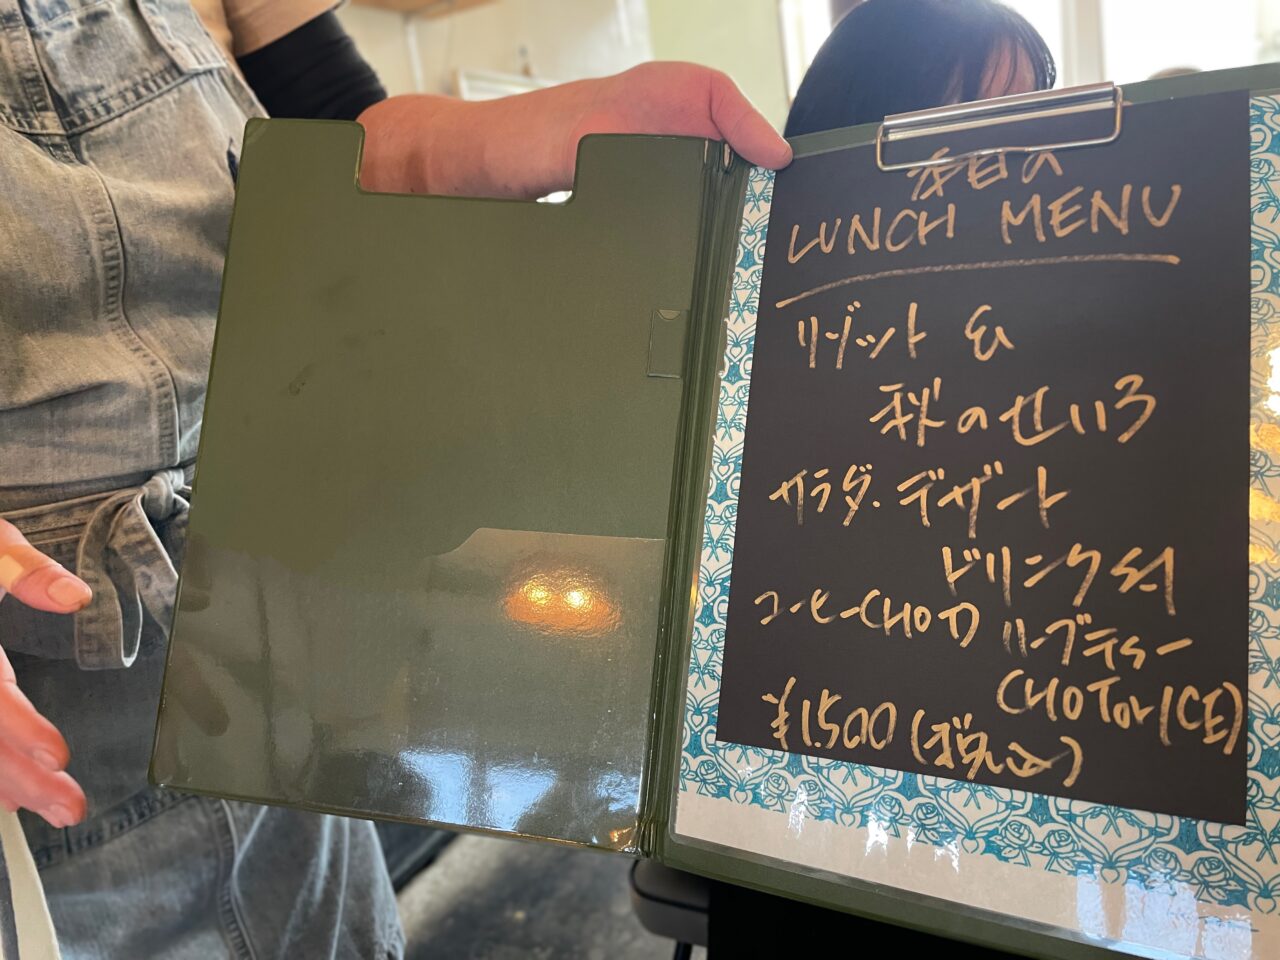 本日の
LUNCH MENU
リゾット &
秋のせいろ
サラダ・デザート
ドリンク付
コーヒー(HOT)
ハーブティー
(HOT or ICE)
¥1.500(税込)